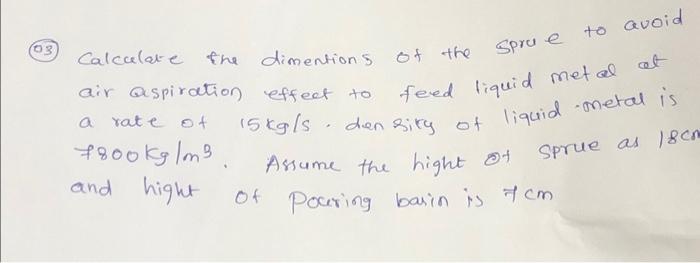 03 Calculate the dimentions of the sprue to avoid
air aspiration effect to feed liquid metal at
a rate of 15kg/s. density of liquid metal is
7800kg/m3. Assume the hight of sprue as 18cm
and hight of pouring basin is 7cm